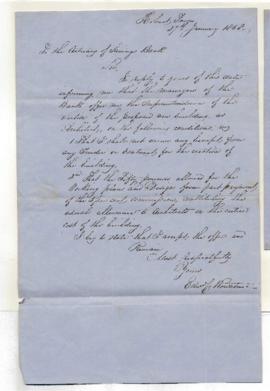 Hobart Town
17th January 1863.
To the Actuary of Savings Bank
Sir,
In reply to yours of this date
informing me that the Managers of the
Bank offer me the Superintendence of the
erection of the proposed new building, as
Architect, on the following conditions, viz
1st That I shall not receive any benefit from
any Tender or Contract for the erection of
the building.
2nd That the Fifty pounds allowed for the
Working plans and Design form part payment
of the five per cent commission, constituting the
usual allowance to Architects on the entire
cost of the building.
I beg to state that I accept the offer and
Remain
Most respectfully
Yours